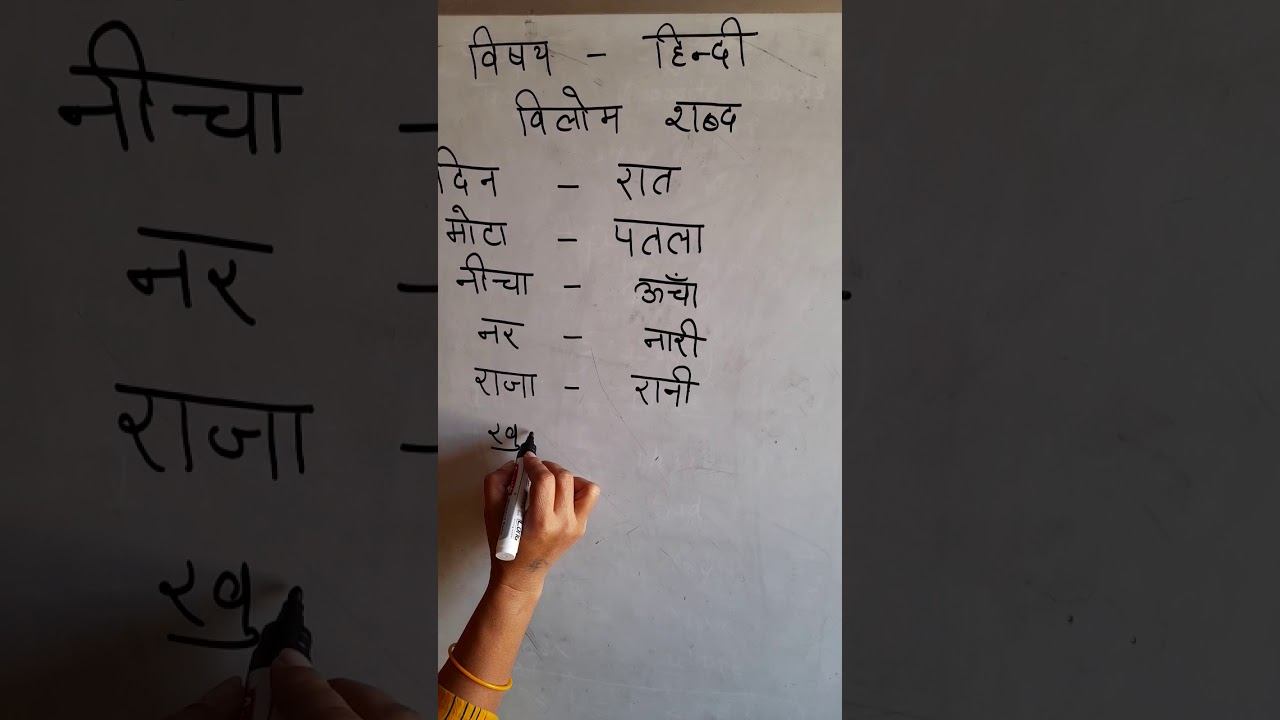 विषय - हिन्दी
विलोम शब्द
दिन - रात
मोटा - पतला
नीचा - ऊँचा
नर - नारी
राजा - रानी
खु